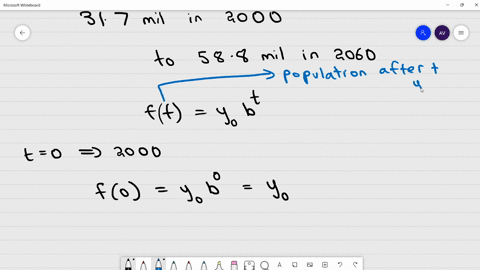 Microsoft Whiteboard
31.7 mil in 2000
AV
to 58.8 mil in 2060
population after t
y
f(t) = y₀ bᵗ
t=0 ⇒ 2000
f(0) = y₀ b⁰ = y₀